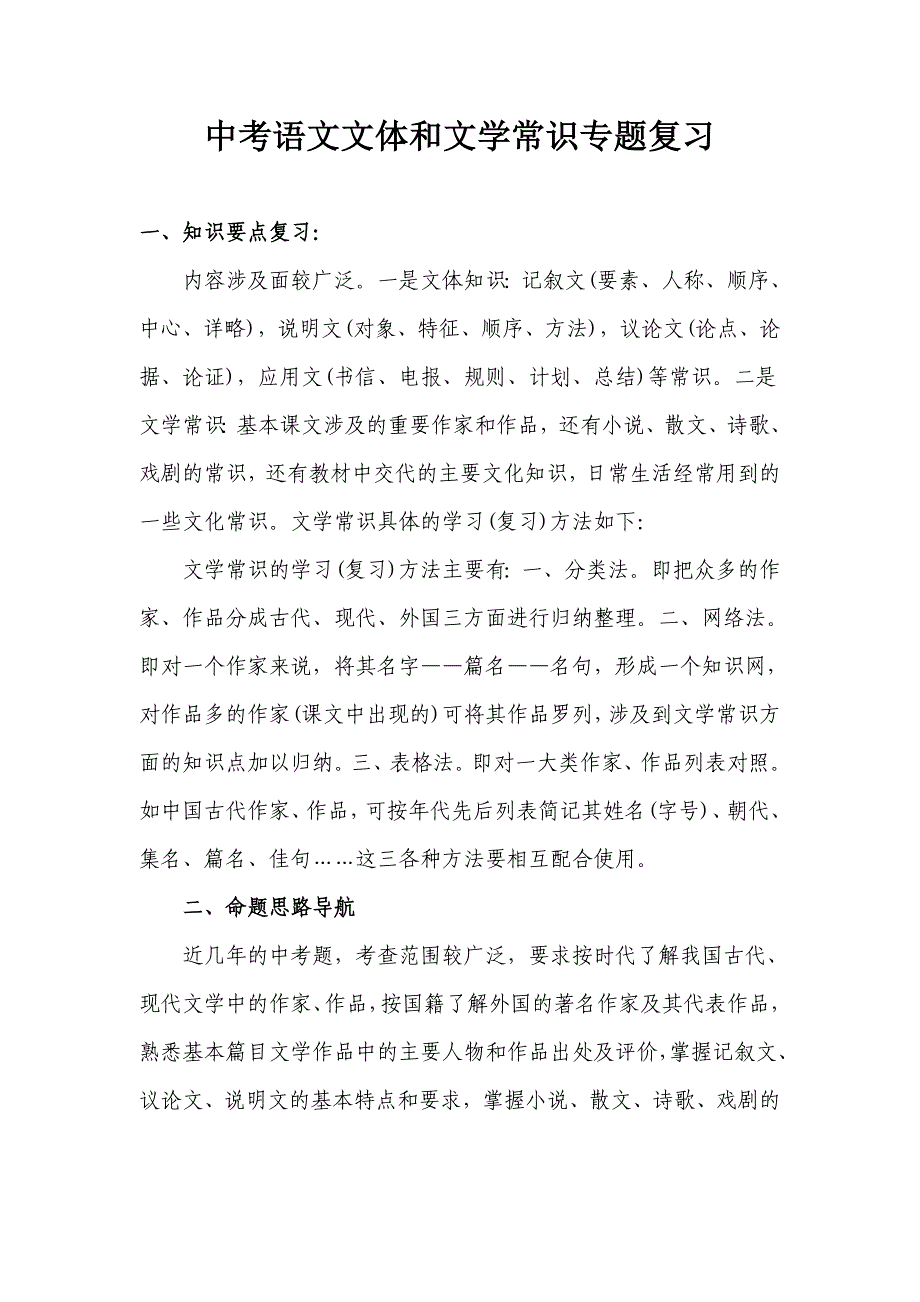 中考语文文体和文学常识专题复习
一、知识要点复习：
内容涉及面较广泛。一是文体知识：记叙文(要素、人称、顺序、
中心、详略)，说明文(对象、特征、顺序、方法)，议论文(论点、论
据、论证)，应用文(书信、电报、规则、计划、总结)等常识。二是
文学常识：基本课文涉及的重要作家和作品，还有小说、散文、诗歌、
戏剧的常识，还有教材中交代的主要文化知识，日常生活经常用到的
一些文化常识。文学常识具体的学习(复习)方法如下：
文学常识的学习(复习)方法主要有：一、分类法。即把众多的作
家、作品分成古代、现代、外国三方面进行归纳整理。二、网络法。
即对一个作家来说，将其名字——篇名——名句，形成一个知识网，
对作品多的作家(课文中出现的)可将其作品罗列，涉及到文学常识方
面的知识点加以归纳。三、表格法。即对一大类作家、作品列表对照。
如中国古代作家、作品，可按年代先后列表简记其姓名(字号)、朝代、
集名、篇名、佳句……这三各种方法要相互配合使用。
二、命题思路导航
近几年的中考题，考查范围较广泛，要求按时代了解我国古代、
现代文学中的作家、作品，按国籍了解外国的著名作家及其代表作品，
熟悉基本篇目文学作品中的主要人物和作品出处及评价，掌握记叙文、
议论文、说明文的基本特点和要求，掌握小说、散文、诗歌、戏剧的